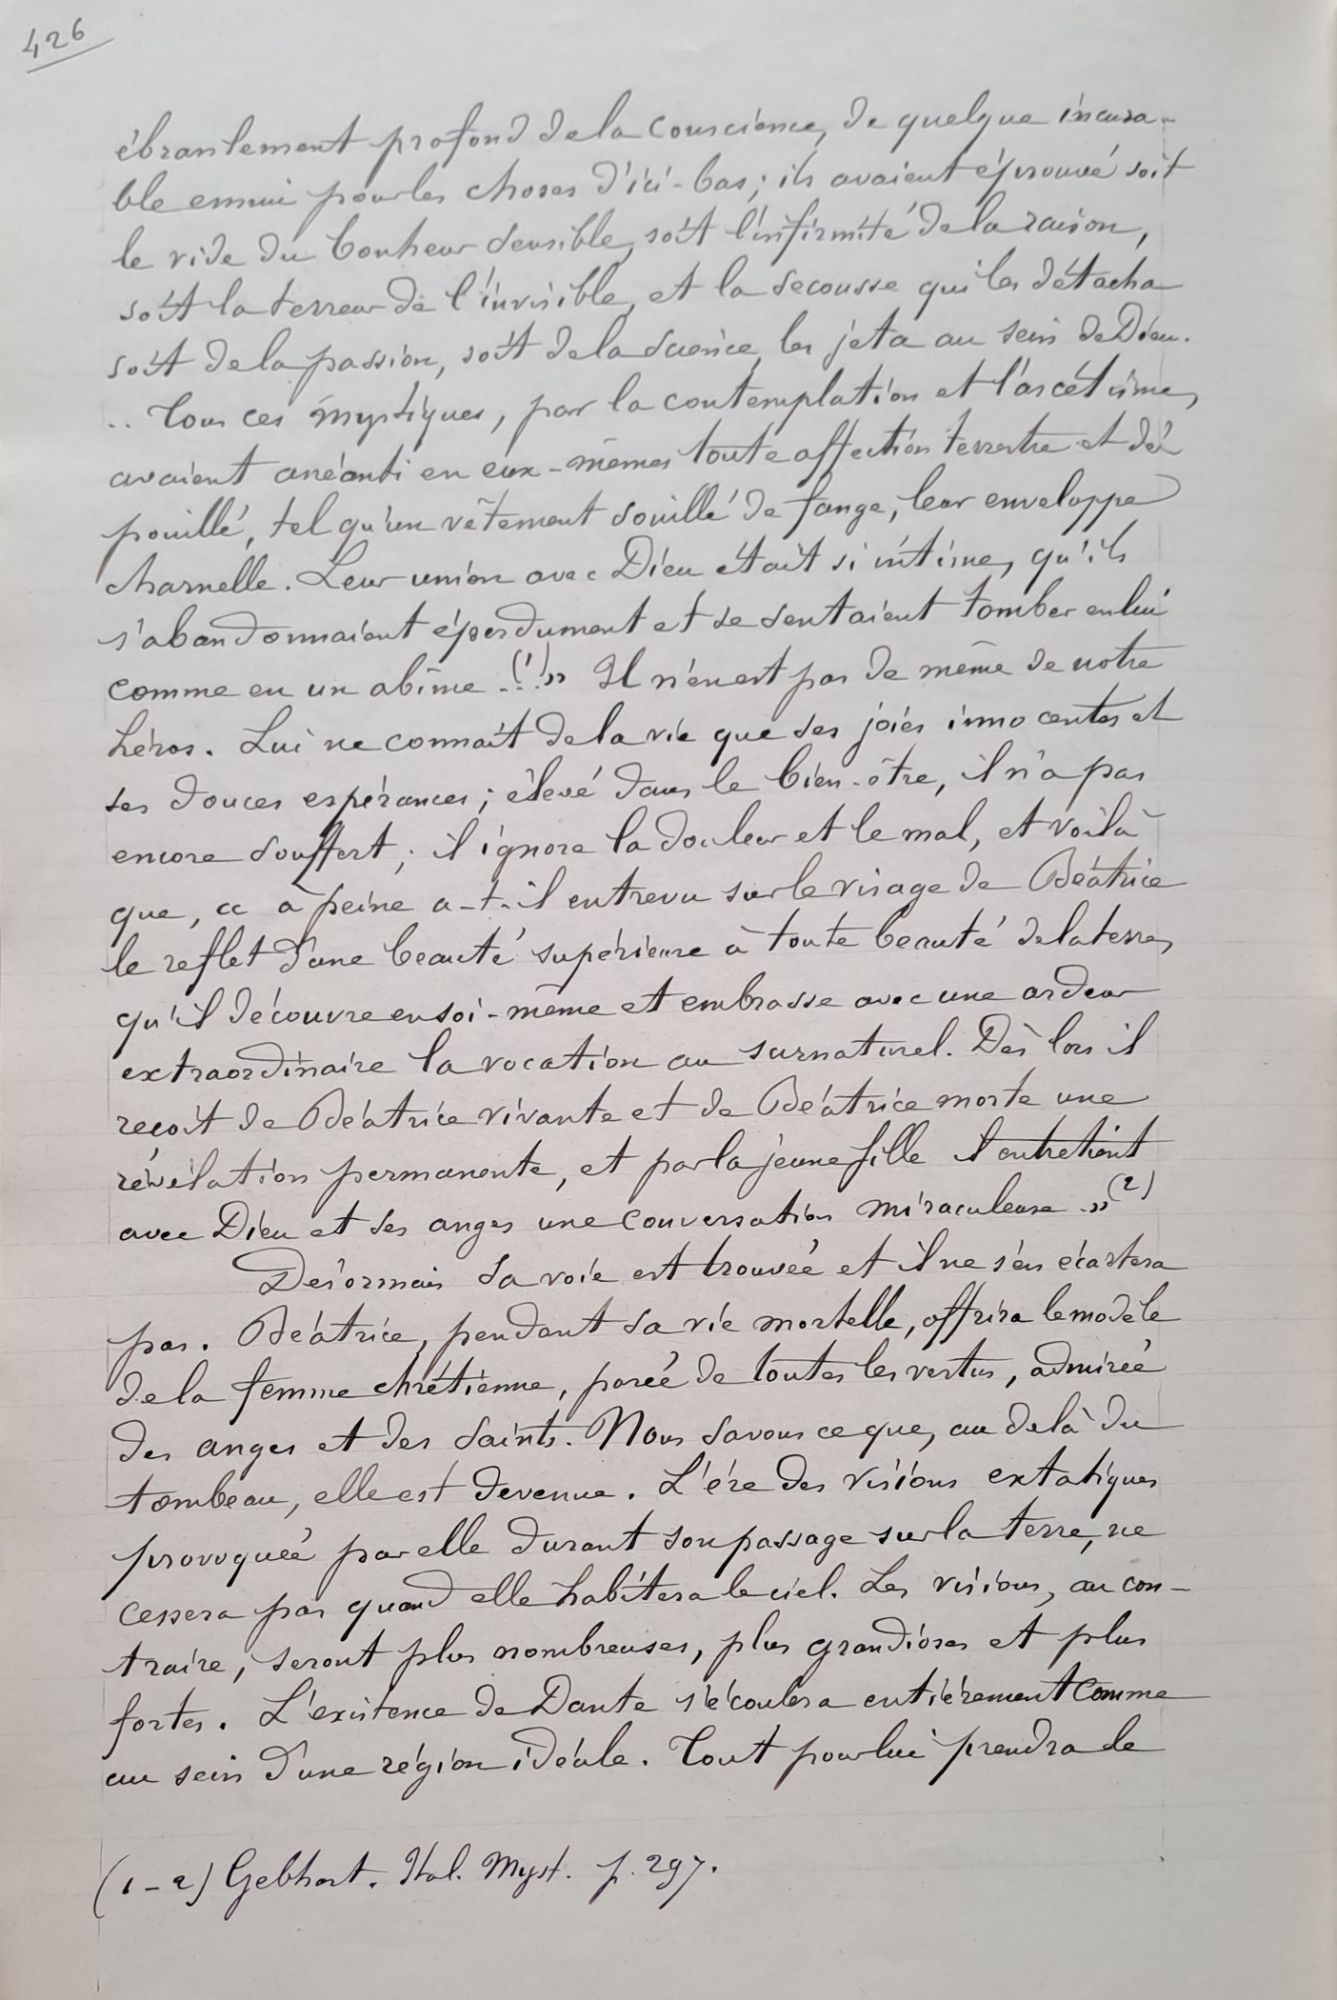 426
ébranlement profond de la conscience, de quelque incura-
ble ennui pour les choses d'ici-bas; ils avaient éprouvé soit
le vide du bonheur sensible, soit l'infirmité de la raison,
soit la terreur de l'invisible, et la secousse qui les détacha
soit de la passion, soit de la science, les jeta au sein de Dieu.
.. Tous ces mystiques, par la contemplation et l'ascétisme,
avaient anéanti en eux-mêmes toute affection terrestre et dé
pouillé, tel qu'un vêtement souillé de fange, leur enveloppe
charnelle. Leur union avec Dieu était si intime, qu'ils
s'abandonnaient éperdument et se sentaient tomber en lui
comme en un abîme...(1)» Il n'en est pas de même de notre
héros. Lui ne connaît de la vie que ses joies innocentes et
ses douces espérances; élevé dans le bien-être, il n'a pas
encore souffert; il ignore la douleur et le mal, et voilà
que, « à peine a-t-il entrevu sur le visage de Béatrice
le reflet d'une beauté supérieure à toute beauté de la terre,
qu'il découvre en soi-même et embrasse avec une ardeur
extraordinaire la vocation au surnaturel. Dès lors il
reçoit de Béatrice vivante et de Béatrice morte une
révélation permanente, et par la jeune fille il entretient
avec Dieu et ses anges une conversation miraculeuse.»(2)
Désormais sa voie est trouvée et il ne s'en écartera
pas. Béatrice, pendant sa vie mortelle, offrira le modèle
de la femme chrétienne, parée de toutes les vertus, admirée
des anges et des saints. Nous savons ce que, au delà du
tombeau, elle est devenue. L'ère des visions extatiques
provoquée par elle durant son passage sur la terre, ne
cessera pas quand elle habitera le ciel. Les visions, au con-
traire, seront plus nombreuses, plus grandioses et plus
fortes. L'existence de Dante s'écoulera entièrement comme
au sein d'une région idéale. Tout pour lui prendra le
(1-2) Gebhart. Ital. Myst. p. 297.